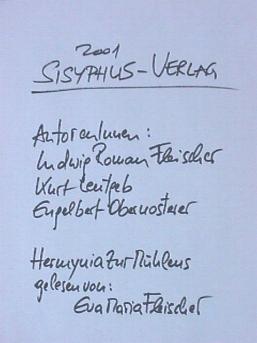 2001
SISYPHUS-VERLAG
AutorenInnen:
Ludwig Roman Fleischer
Kurt Leutgeb
Engelbert Obernosterer
Hermynia Zur Mühlens
gelesen von:
Eva Maria Fleischer